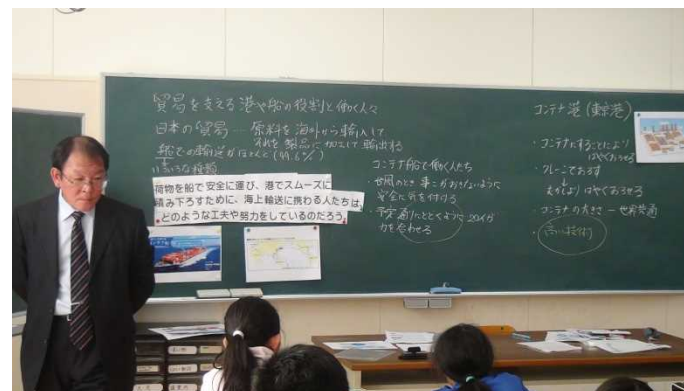 貿易を支える港や船の役割と働く人々
日本の貿易…原料を海外から輸入して
それを製品に加工して輸出する
船での輸送がほとんど(99.6%)
いろいろな種類
荷物を船で安全に運び、港でスムーズに
積み下ろすために、海上輸送に携わる人たちは、
どのような工夫や努力をしているのだろう。
コンテナ船で働く人たち
・台風のとき事こがおきないように
安全に気を付ける
・予定通りにとどくように20人が
力を合わせる
コンテナ港(東京港)
・コンテナにすることにより
はやくおろせる
・クレーンでおろす
むかしよりはやくおろせる
・コンテナの大きさ—世界共通
・高い技術